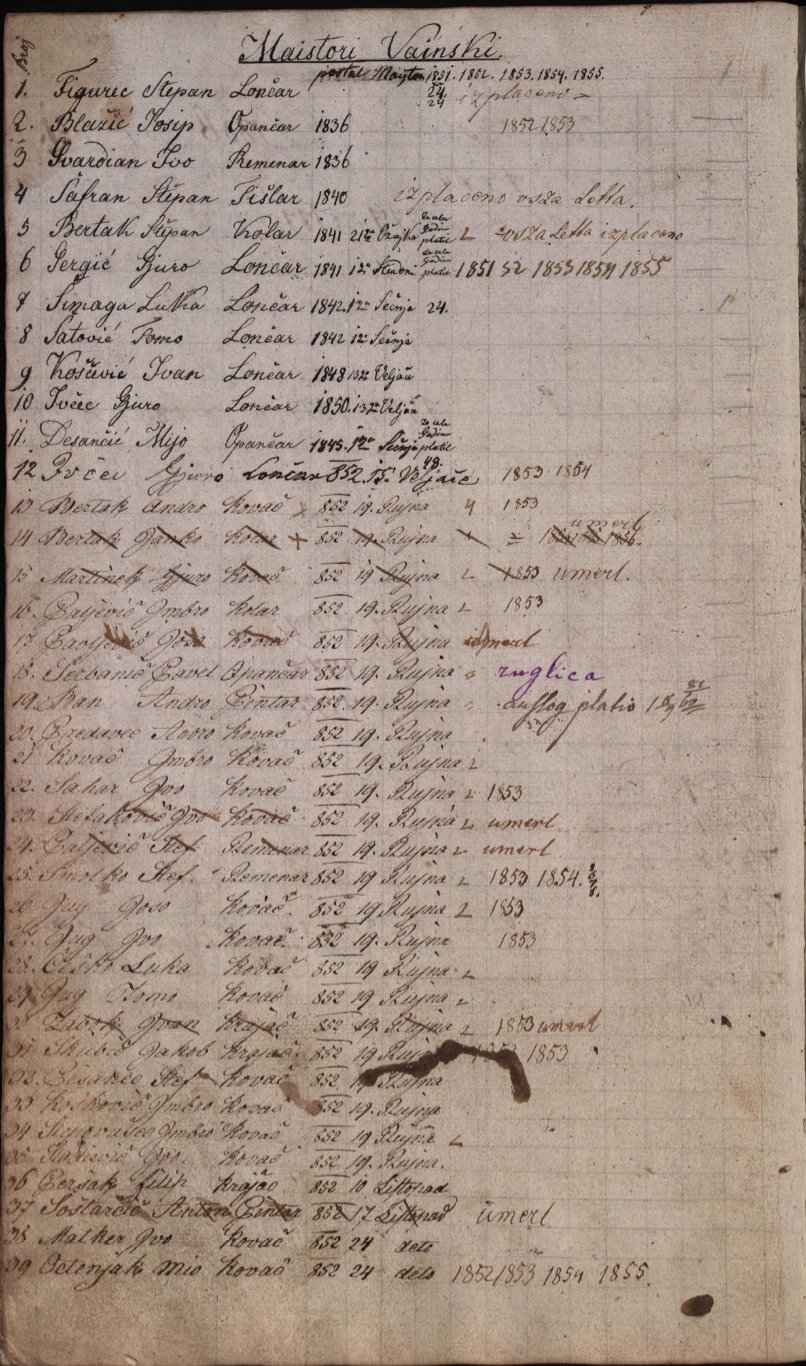 Broj
Maistori Vainski.
postal Maistor 1851. 1852. 1853. 1854. 1855.
1. Figurec Stepan Lončar 24. 24 izplaceno
2. Blazić Josip Opančar 1836 1852 1853
3 Gvardian Ivo Remenar 1836
4 Šafran Štěpan Tišlar 1840 izplaceno vsza Letta.
5 Bertak Štěpan Kolar 1841 21 Ožujka za celu Godinu platil 2 vsza Letta izplaceno
6 Gergić Gjuro Lončar 1841 12 Studni za celu Godinu platil 1851 52 1853 1854 1855
7 Simaga Luka Lončar 1842. 12 Sečnja 24.
8 Satović Tomo Lončar 1842 12 Sečnja
9 Koščević Ivan Lončar 1848 13 Veljača
10 Ivčec Gjuro Lončar 1850. 13 Veljača
11. Desančić Mijo Opančar 1845. 12 Sečnja za celu Godinu platil
48.
12 Ivčec Gjuro Lončar 852. 15. Veljače 1853 1854
13 Bertak Andro Kovač x 852 19. Rujna 4 1853
14 Bertak Janko Kolar x 852 19. Rujna umerl
15 Martinek Gjuro Kovač 852 19 Rujna 2 1853 umerl.
16. Paljević Imbro Kolar 852 19. Rujna 2 1853
17 Kovač 852 19. Rujna umerl
18. Serbanič Pavel Opančar 852 19. Rujna ruglica
19. Ban Andro Pintar 852 19. Rujna auflog platio
20. Predavec Andro Kovač 852 19. Rujna
21 Kovač Imbro Kovač 852 19. Rujna 2
22. Sahar Ivo Kovač 852 19. Rujna 2 1853
23. Stefakovič Ivo Kovač 852 19. Rujna 2 umerl
24. Paljevič Stef Remenar 852 19. Rujna 2 umerl
25. Smolko Stef. Remenar 852 19 Rujna 2 1853 1854.
26 Jug Joso Kovač. 852 19 Rujna 2 1853
27. Jug Ivo Kovač. 852 19. Rujna 1853
28. Češko Luka Kovač 852 19 Rujna 2
29. Jug Tomo Kovač 852 19 Rujna 2
30 Ivan Krajač 852 19. Rujna 2 1853 umerl
31 Skubič Jakob Krajač. 852 19 Rujna 1853
32. Stef Kovač 852 19 Rujna
33 Imbro Kovač 852 19. Rujna
34 Imbro Kovač 852 19 Rujna 2
35 Ivo Kovač 852 19. Rujna.
36 Peršak Filip Krajač 852 10 Listopad
37 Soštarčič Anton Pintar 852 17 Listopad umerl
38 Malker Ivo Kovač 852 24 deto
39 Octenjak Mio Kovač 852 24 deto 1852 1853 1854 1855.